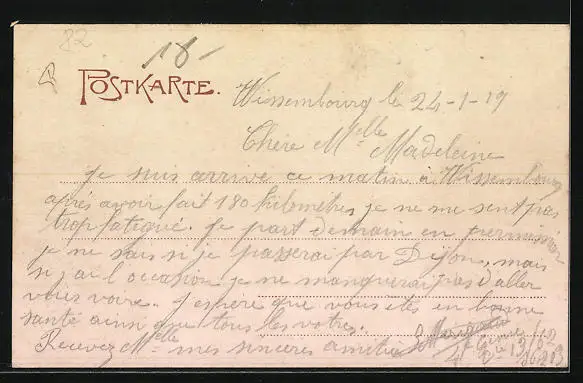 82
18-
POSTKARTE.
Wissembourg le 24-1-19
Chère Melle Madeleine
Je suis arrive ce matin à Wissembourg
après avoir fait 180 kilomètres je ne me sent pas
trop fatigué. Je part demain en permission
je ne sais si je passerai par Dijon, mais
si j'ai l'occasion je ne manquerai pas d'aller
vous voire. J espère que vous êtes en bonne
santé ainsi que tous les votres.
Recevez Melle mes sincères amitiés